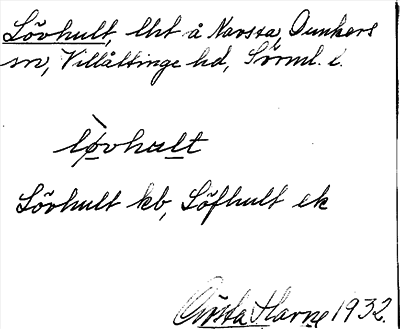 Lövhult, lht å Navsta, Dunkers
sn, Villåttinge hd, Sörml. l.
lòvhult
Lövhult kb, Löfhult ek
Gösta Harne 1932.